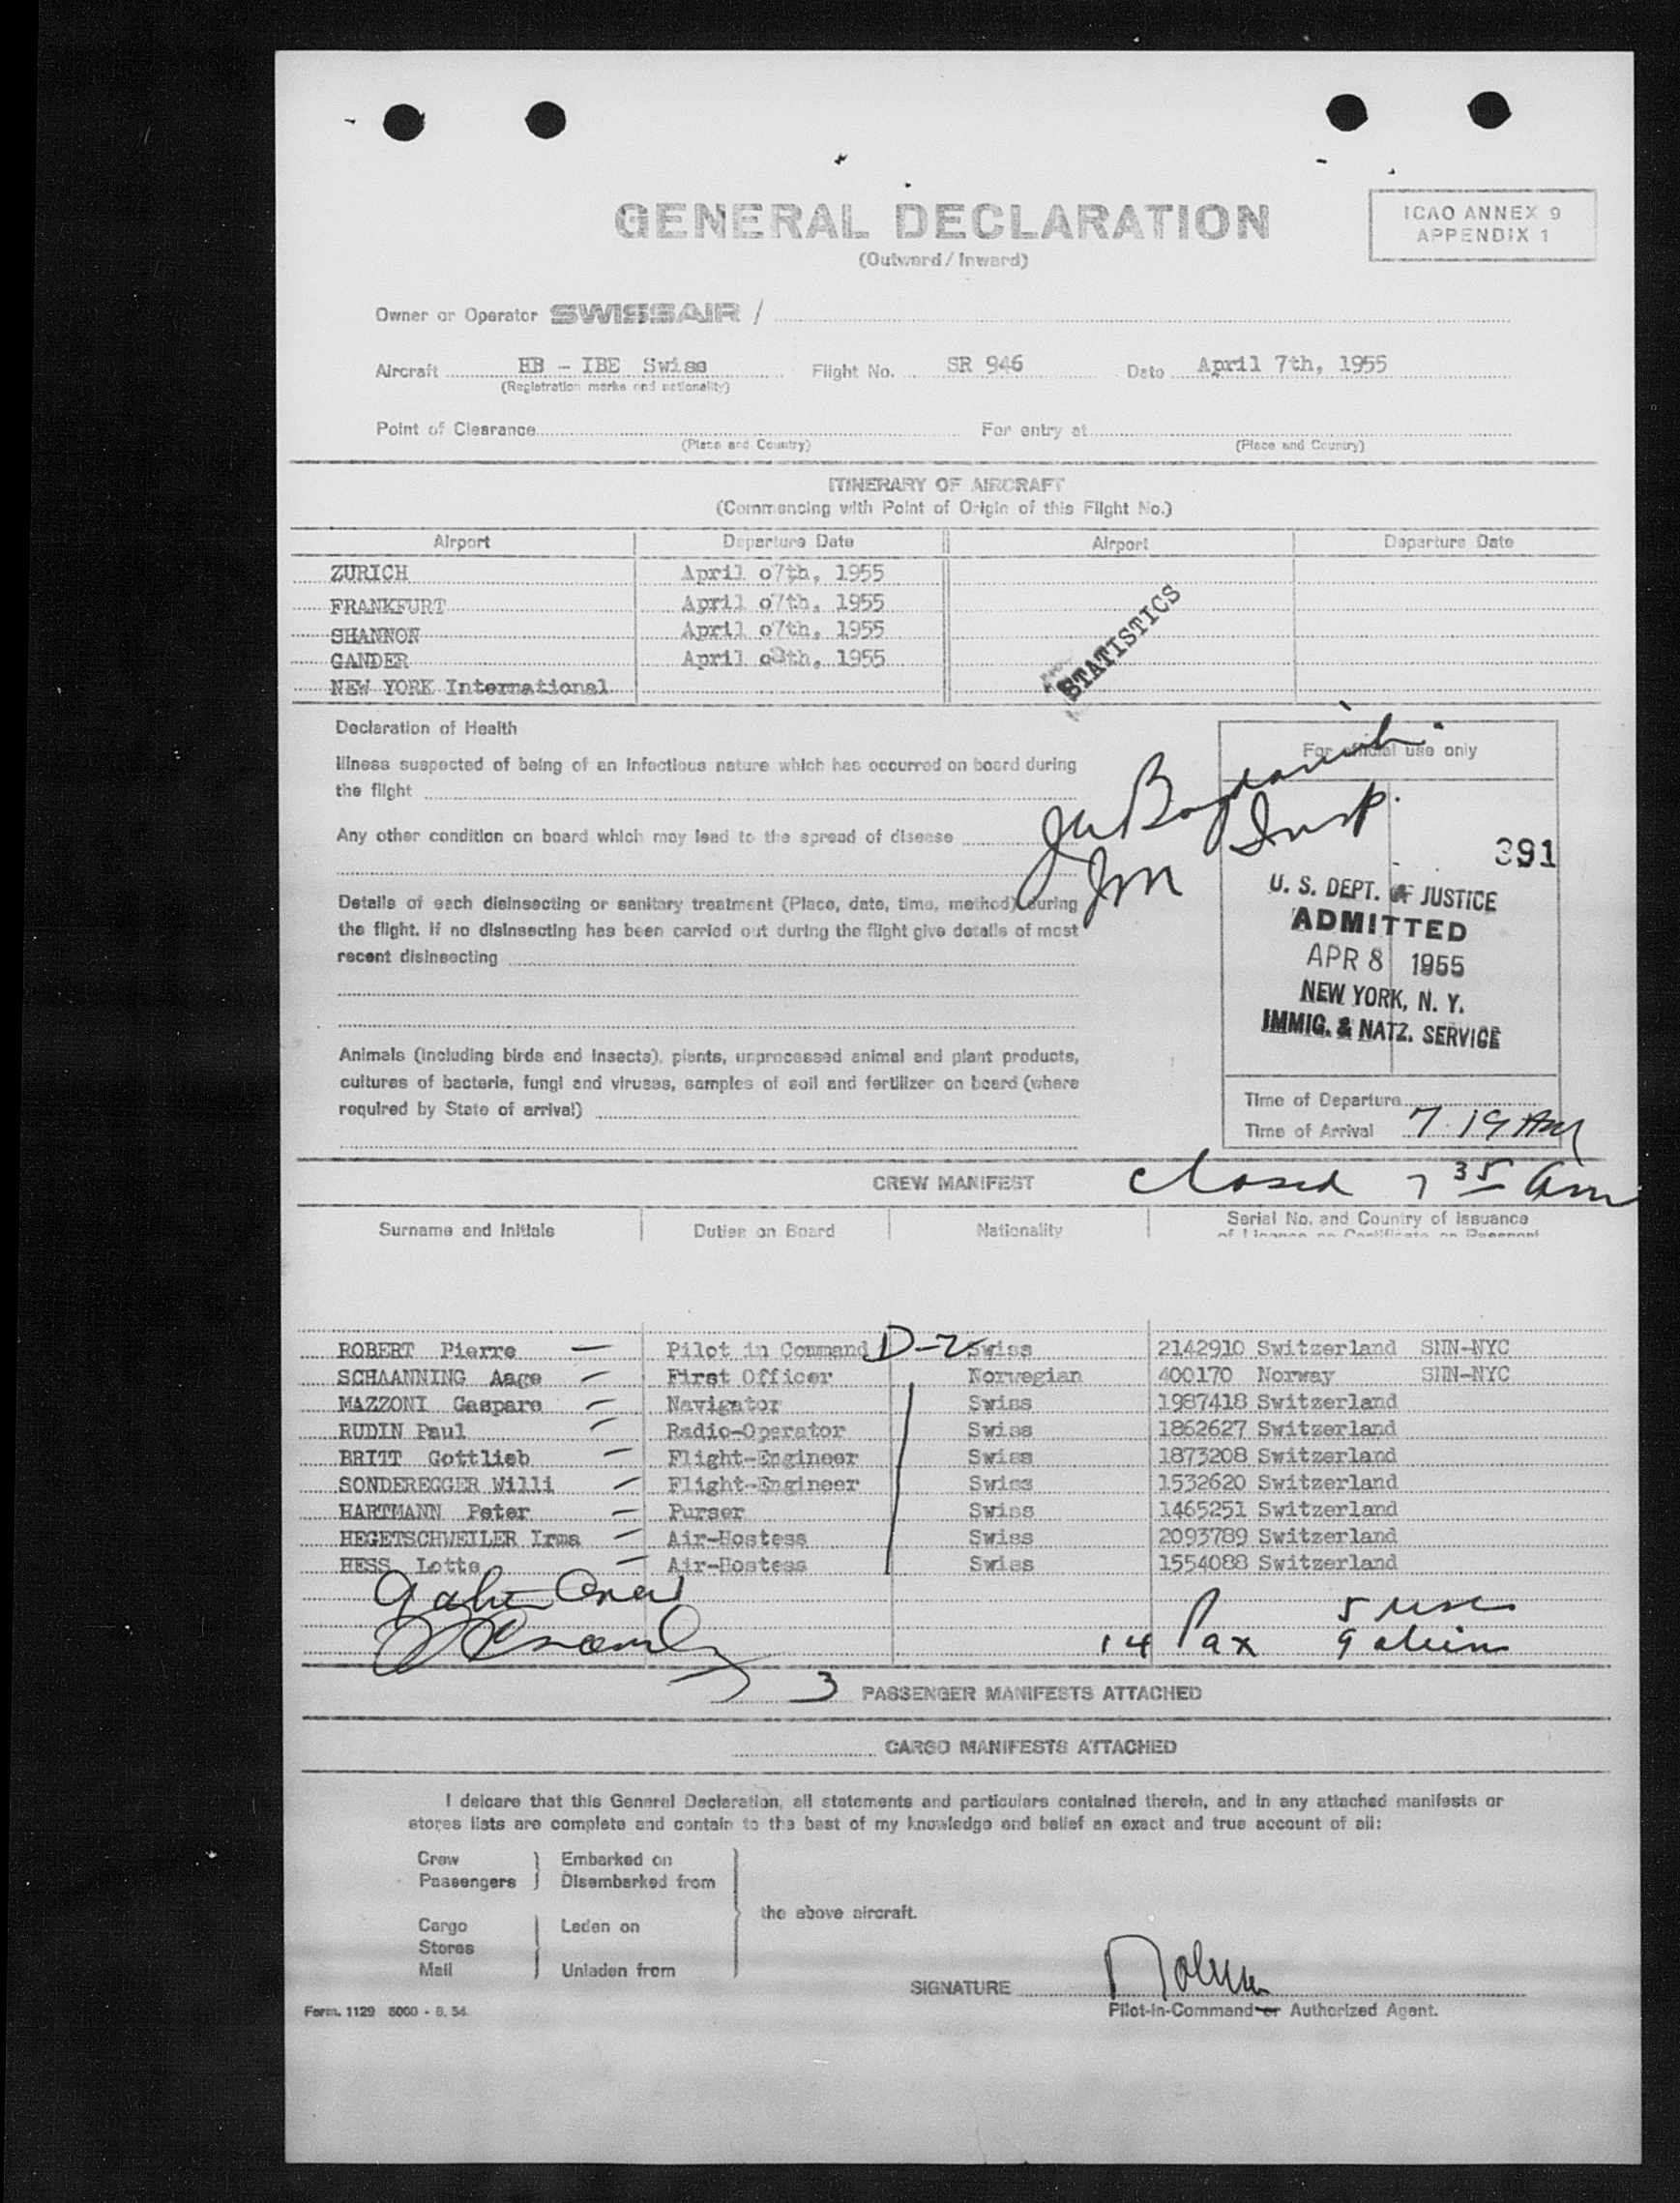 GENERAL DECLARATION
(Outward / Inward)
ICAO ANNEX 9
APPENDIX 1
Owner or Operator SWISSAIR /
Aircraft HB - IBE Swiss Flight No. SR 946 Date April 7th, 1955
(Registration marks and nationality)
Point of Clearance For entry at
(Place and Country) (Place and Country)
ITINERARY OF AIRCRAFT
(Commencing with Point of Origin of this Flight No.)
Airport Departure Date Airport Departure Date
ZURICH April 07th, 1955
FRANKFURT April 07th, 1955
SHANNON April 07th, 1955
GANDER April 08th, 1955
NEW YORK International
STATISTICS
Declaration of Health
Illness suspected of being of an infectious nature which has occurred on board during
the flight
Any other condition on board which may lead to the spread of disease
Details of each disinsecting or sanitary treatment (Place, date, time, method) during
the flight. If no disinsecting has been carried out during the flight give details of most
recent disinsecting
Animals (including birds and insects), plants, unprocessed animal and plant products,
cultures of bacteria, fungi and viruses, samples of soil and fertilizer on board (where
required by State of arrival)
For official use only
Insp.
391
U. S. DEPT. OF JUSTICE
ADMITTED
APR 8 1955
NEW YORK, N. Y.
IMMIG. & NATZ. SERVICE
Time of Departure
Time of Arrival 7:19 AM
CREW MANIFEST Closed 7 35 am
Surname and Initials Duties on Board Nationality Serial No. and Country of Issuance
of Licence or Certificate or Passport
ROBERT Pierre — Pilot in Command D-2 Swiss 2142910 Switzerland SNN-NYC
SCHAANNING Aage — First Officer Norwegian 400170 Norway SNN-NYC
MAZZONI Gaspare — Navigator Swiss 1987418 Switzerland
RUDIN Paul — Radio-Operator Swiss 1862627 Switzerland
BRITT Gottlieb — Flight-Engineer Swiss 1873208 Switzerland
SONDEREGGER Willi — Flight-Engineer Swiss 1532620 Switzerland
HARTMANN Peter — Purser Swiss 1465251 Switzerland
HEGETSCHWEILER Irma — Air-Hostess Swiss 2093789 Switzerland
HESS Lotte — Air-Hostess Swiss 1554088 Switzerland
5 usc
14 Pax 9 aliens
3 PASSENGER MANIFESTS ATTACHED
CARGO MANIFESTS ATTACHED
I delcare that this General Declaration, all statements and particulars contained therein, and in any attached manifests or
stores lists are complete and contain to the best of my knowledge and belief an exact and true account of all:
Crew Embarked on
Passengers Disembarked from
the above aircraft.
Cargo Laden on
Stores
Mail Unladen from
SIGNATURE
Pilot-in-Command or Authorized Agent.
Form. 1129 5000 - 8. 54